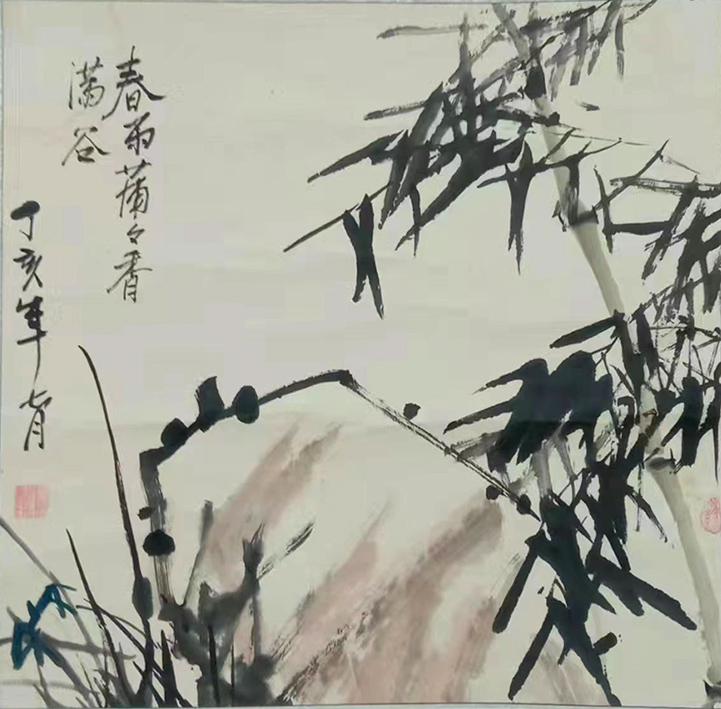 春雨蒲々香
满谷
丁亥年
七月